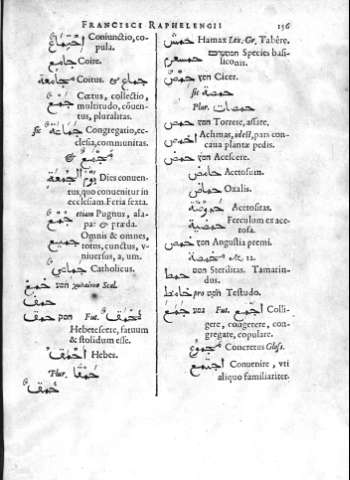 FRANCISCI RAPHELENGII
156
اجتماع Coniunctio, co-
pula.
جامع Coire.
جماع & مجامعة Coitus.
جمع Cœtus, collectio,
multitudo, cōuen-
tus, pluralitas.
sic جماعة Congregatio, ec-
clesia, communitas.
& مجمع
يوم الجمعة Dies conuen-
tus, quo conuenitur in
ecclesiam. Feria sexta.
جمع etiam Pugnus, ala-
pa: & præda.
جميع Omnis & omnes,
totus, cunctus, v-
niuersus, a, um.
جماعي Catholicus.
Scal.
حمق
حمق Fut.
Hebetescere, fatuum
& stolidum esse.
احمق Hebes.
Plur. حمقا
حمق
חמש Hamax Lex. Gr. Tabēre.
Species basi-
liconis.
حمص Cicer.
sic
Plur. حمصات
حمص Torrere, assare.
اخمص Achmas, idest, pars con-
caua plantæ pedis.
حمض Acescere.
حامض Acetosum.
حماض Oxalis.
حموضة Acetositas.
Ferculum ex ace-
tosa.
حمص Angustia premi.
& 12.
حمط Steriditas. Tamarin-
dus.
pro Testudo.
جمع Fut. اجمع Colli-
gere, coagerere, con-
gregate, copulare.
مجموع Concretus Gloss.
اجتمع Conuenire, vti
aliquo familiariter.